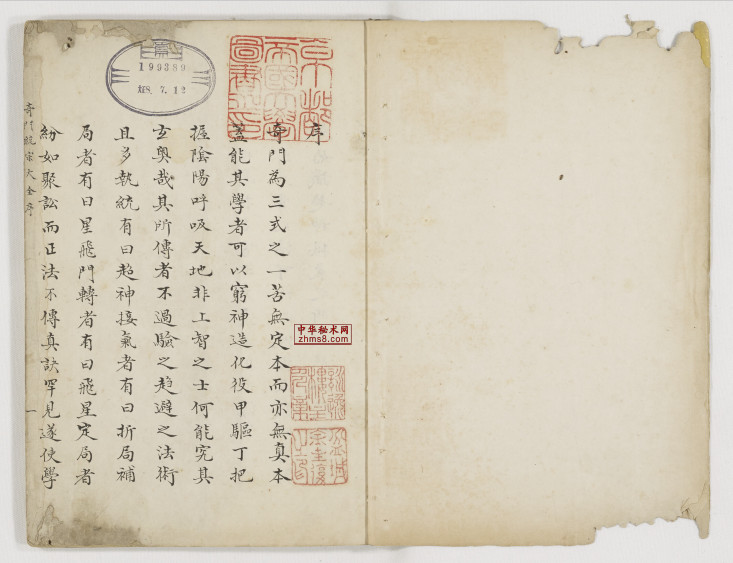 京都
帝國大學
圖書之印
199389
昭8.7.12
序
奇門為三式之一苦無定本而亦無真本
蓋能其學者可以窮神造化役甲驅丁把
握陰陽呼吸天地非上智之士何能究其
玄奧哉其所傳者不過驗之趋避之法術
且多執統有曰超神接氣者有曰折局補
局者有曰星飛門轉者有曰飛星定局者
紛如聚訟而正法不傳真訣罕見遂使學
奇門統宗大全序
一
中华秘术网
zhms8.com